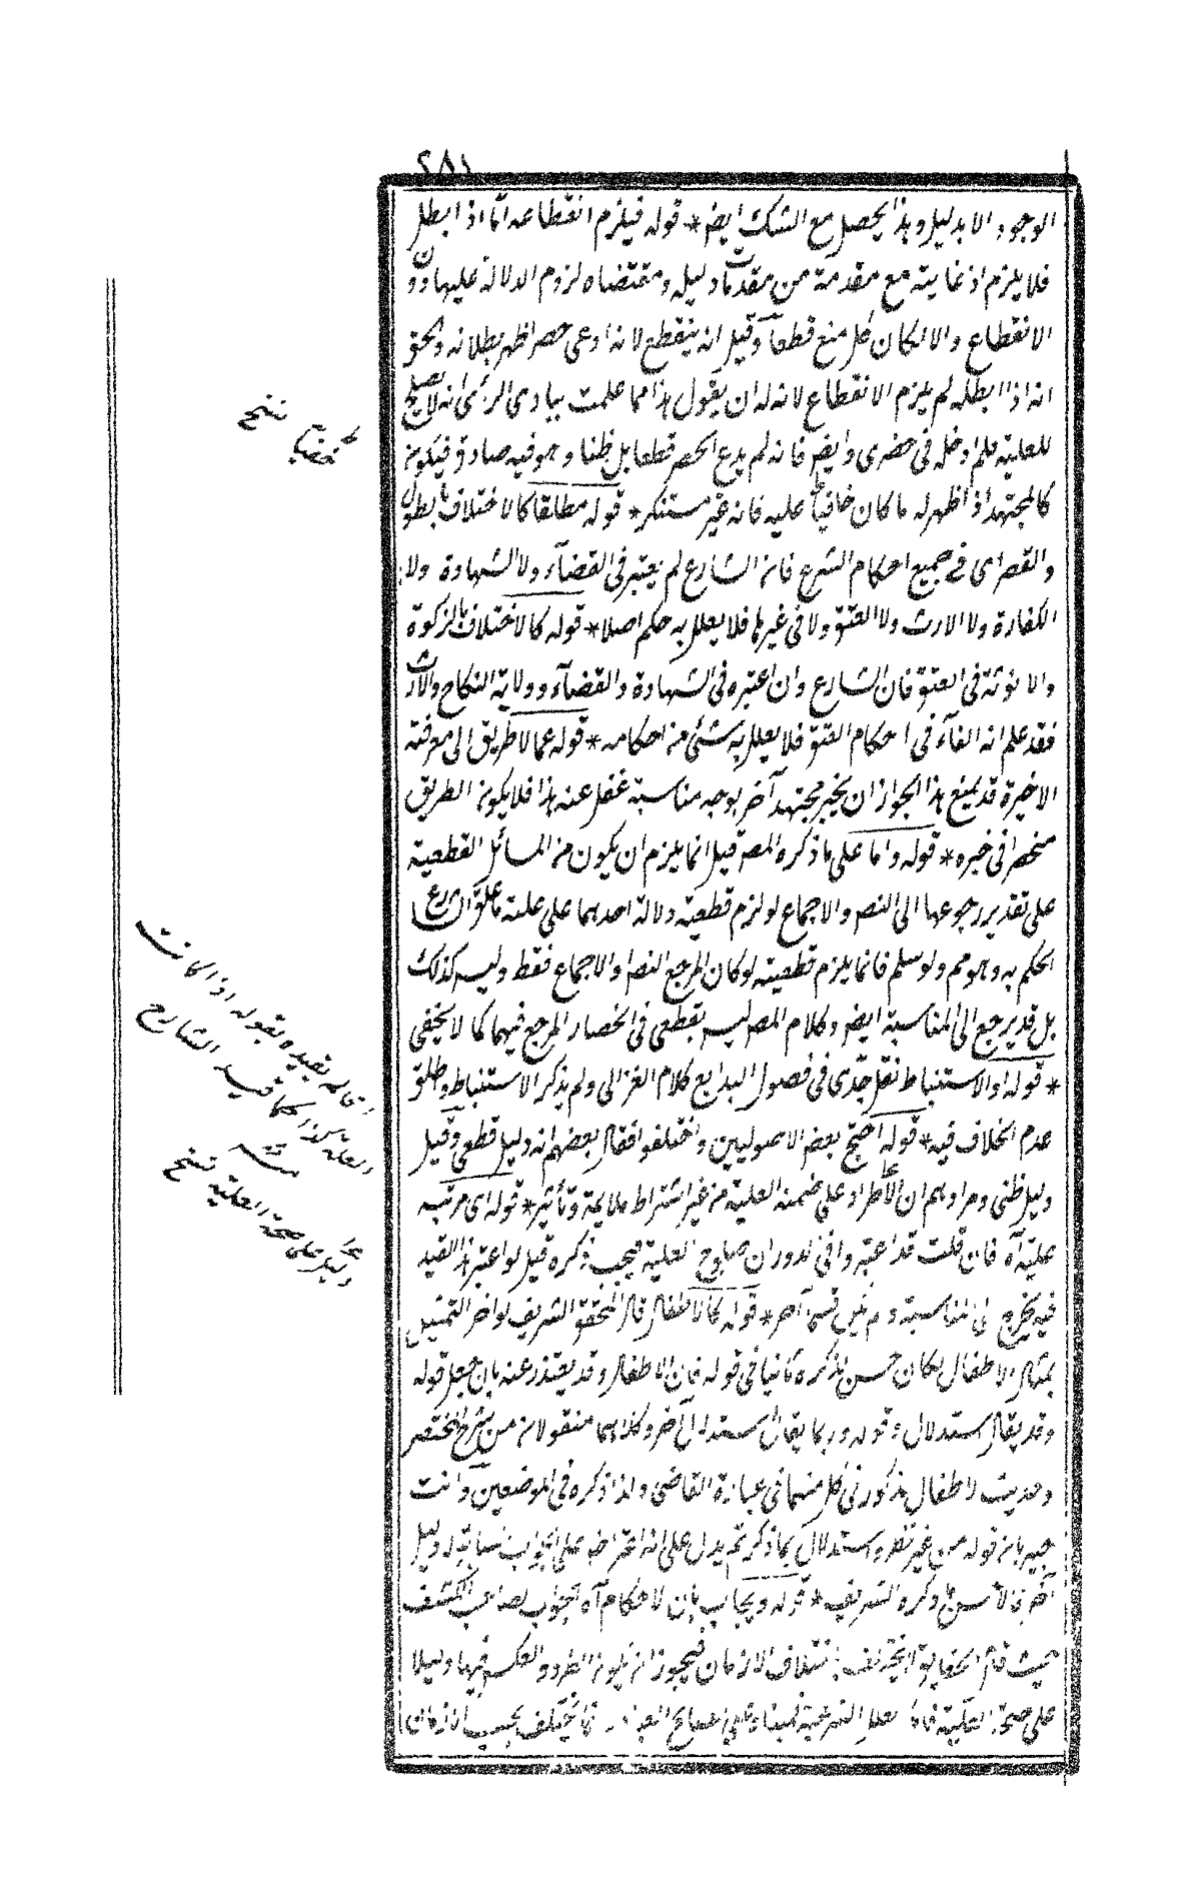 ٢٨١
الوجود الا بدليل وهذا يحصل مع الشك ايض * قوله فيلزم انقطاعه اما اذا ابطل
فلا يلزم اذ غايته مع مقدمة من مقدمات دليله ومقتضاه لزوم الدلالة عليها دون
الانقطاع والا لكان كل منع قطعا وقيل انه ينقطع لانه ادعى حصرا ظهر بطلانه والحق
انه اذا ابطله لم يلزم الانقطاع لانه له ان يقول هذا مما علمت ببادى الرئى انه لا يصلح
للعلية فلم ادخله فى حصرى وايض فانه لم يدع الحصر قطعا بل ظنا وهو فيه صادق فيكون
كالمجتهد اذا ظهر له ما كان خافيا عليه فانه غير مستنكر * قوله مطلقا كالاختلاف بالطول
والقصر اى فى جميع احكام الشرع فان الشارع لم يعتبر فى القضآء ولا الشهادة ولا
الكفارة ولا الارث ولا العتق ولا فى غيرها فلا يعلل به حكم اصلا * قوله كالاختلاف بالذكورة
والانوثة فى العتق فان الشارع وان اعتبره فى الشهادة والقضآء وولاية النكاح والارث
فقد علم انه الغآء فى احكام العتق فلا يعلل به شئى من احكامه * قوله عما لا طريق الى معرفته
الا خبرة قد يمنع هذا لجواز ان يخبر مجتهد آخر بوجه مناسبة غفل عنه هذا فلا يكون الطريق
منحصرا فى خبره * قوله واما على ما ذكره المصر قيل انما يلزم ان يكون من المسائل القطعية
على تقدير رجوعها الى النص والاجماع لو لزم قطعية دلالة احدهما على علية ما علق الشارع
الحكم به وهو مم ولو سلم فانما يلزم قطعيته لو كان المرجع النص او الاجماع فقط وليس كذلك
بل قد يرجع الى المناسبة ايض وكلام المصر ليس بقطعى فى انحصار المرجع فيهما كما لا يخفى
* قوله او الاستنباط نقل جدى فى فصول البدايع كلام الغزالى ولم يذكر الاستنباط واطلق
عدم الخلاف فيه * قوله احتج بعض الاصوليين واختلفوا فقال بعضهم انه دليل قطعى وقيل
دليل ظنى ومرادهم ان الاطراد على ضمنه العلية من غير اشتراط ملايمة وتأثير * قوله اى مرتبه
علية آه فان قلت قد اعتبروا فى الدوران صلوح العلية فيجب ذكره قيل لو اعتبر هذا القيد
فيه يخرج الى المناسبة و لم يكن قسما آخر * قوله كالاطفال قال المحقق الشريف لو اخر التمثيل
بمثال الاطفال لكان حسن بذكره ثانيا فى قوله فان الاطفال وقد يعتذر عنه بان جعل قوله
وقد يقال استدلال وقوله وربما يقال استدلال آخر وكلاهما منقولان من شرح المختصر
وحديث الاطفال مذكور فى كل منهما فى عبارة القاضى ولذا ذكره فى الموضعين وانت
خبير بان قوله من غير نظر واستدلال بما ذكر ثم يدل على انه اعتراض على الجواب لا دليل
آخر فالاحسن ما ذكره الشريف * قوله ويجاب بان الاحكام آه الجواب لصاحب الكشف
حيث قال الحقايق لا تختلف باختلاف الازمان فيجوز ان يكون الطرد والعكس فيها دليلا
على صحة العلية فاما العلل الشرعية فمبناه على مصالح العباد فانها تختلف بحسب الازمان
تخصيص نسخ
فانه يقيده بقوله اذا كانت
العلة كما قيد الشارح
منه
دليل على صحة العلية نسخ